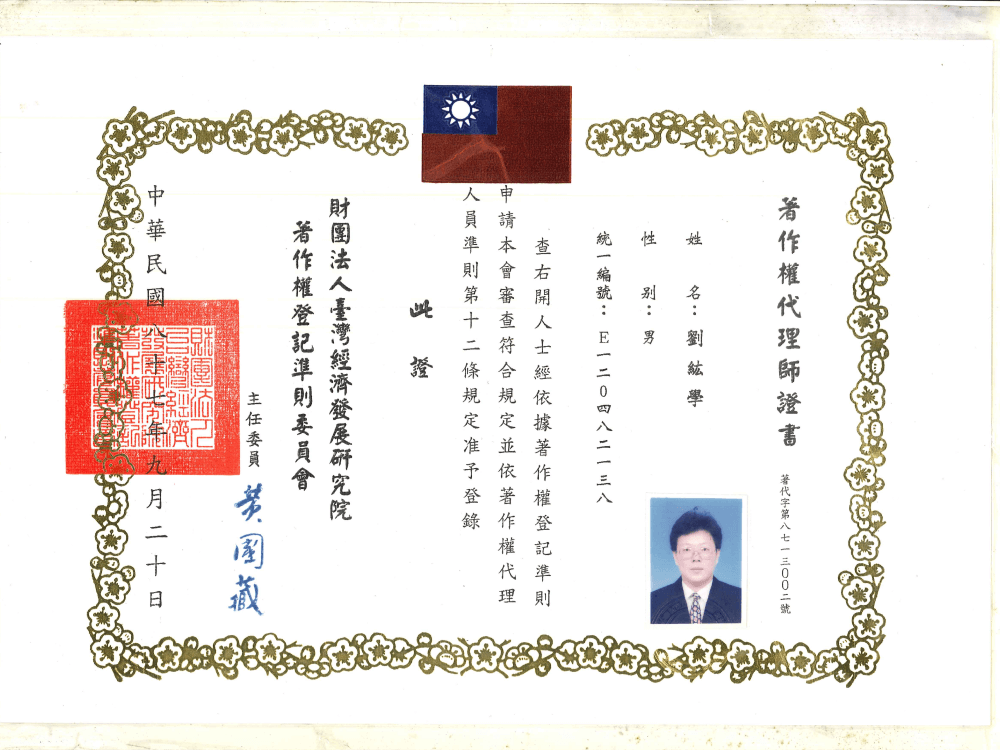 著作權代理師證書
著代字第八七一三00二號
姓　名：劉紘學
性　別：男
統一編號：E一二0四八二一三八
查右開人士經依據著作權登記準則
申請本會審查符合規定並依著作權代理
人員準則第十二條規定准予登錄
此證
財團法人臺灣經濟發展研究院
著作權登記準則委員會
主任委員
黃國藏
中華民國八十七年九月二十日